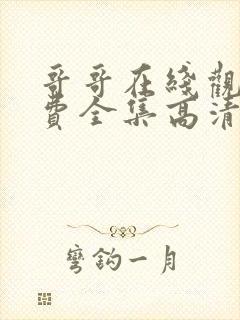 哥哥在綫觀
費全集高清
彎鈎一月